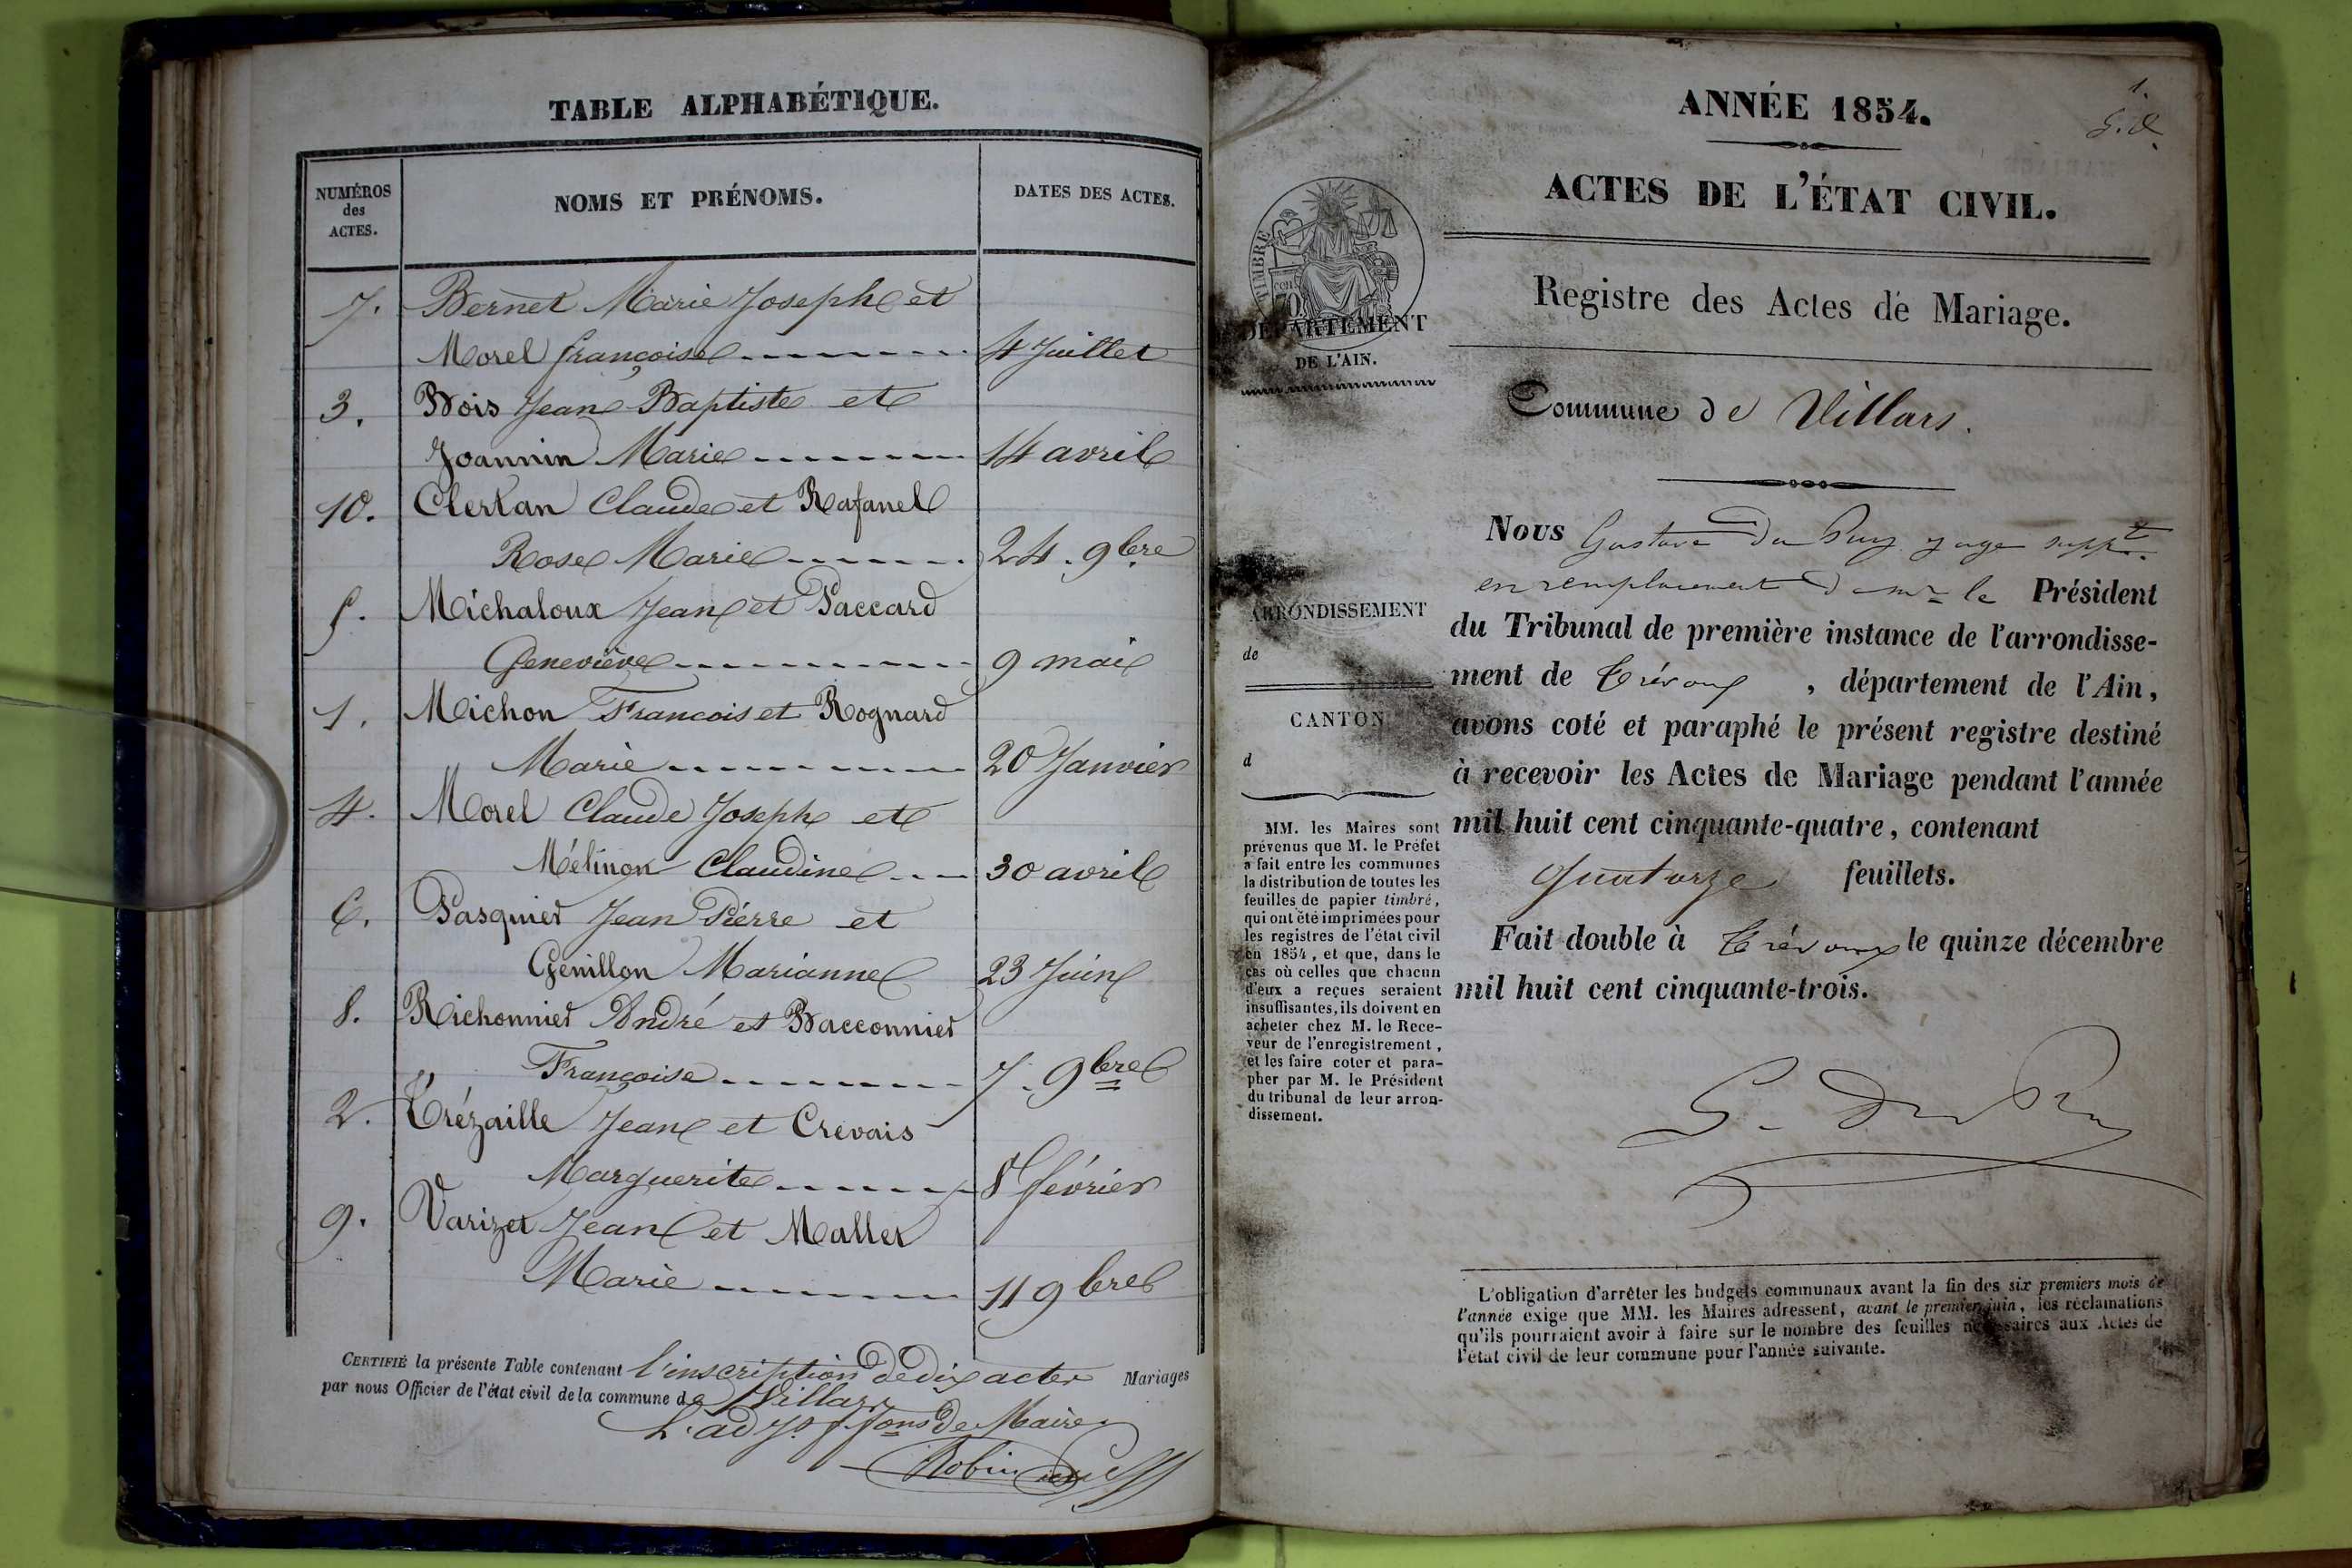 TABLE ALPHABÉTIQUE.
NUMÉROS
des
ACTES.
NOMS ET PRÉNOMS.
DATES DES ACTES.
7. Bernet Marie Joseph et
Morel françoise 4 Juillet
3. Bois Jean Baptiste et
Joannin Marie 14 avril
10. Clerlan Claude et Rafanel
Rose Marie 24. 9bre
5. Michaloux Jean et Paccard
Geneviève 9 mai
1. Michon Francois et Rognard
Marie 20 Janvier
4. Morel Claude Joseph et
Mélinon Claudine 30 avril
6. Pasquier Jean Pierre et
Genillon Marianne 23 Juin
8. Richonnier André et Bacconnier
Françoise 7. 9bre
2. Trézaille Jean et Crevais
Marguerite 8 février
9. Varizet Jean et Mallet
Marie 11 9bre
CERTIFIÉ la présente Table contenant l'inscription de dix actes Mariages
par nous Officier de l'état civil de la commune de Villars
L'adjt ffons de Maire
Robin
1.
G. D.
ANNÉE 1854.
ACTES DE L'ÉTAT CIVIL.
TIMBRE
70 cen
DÉPARTEMENT
DE L'AIN.
Registre des Actes de Mariage.
Commune de Villars.
ARRONDISSEMENT
de
CANTON
d
MM. les Maires sont
prévenus que M. le Préfet
a fait entre les communes
la distribution de toutes les
feuilles de papier timbré,
qui ont été imprimées pour
les registres de l'état civil
en 1854, et que, dans le
cas où celles que chacun
d'eux a reçues seraient
insuffisantes, ils doivent en
acheter chez M. le Rece-
veur de l'enregistrement,
et les faire coter et para-
pher par M. le Président
du tribunal de leur arron-
dissement.
Nous Gustave Du Puy juge suppt
en remplacement de mr le Président
du Tribunal de première instance de l'arrondisse-
ment de Trévoux, département de l'Ain,
avons coté et paraphé le présent registre destiné
à recevoir les Actes de Mariage pendant l'année
mil huit cent cinquante-quatre, contenant
quatorze feuillets.
Fait double à Trévoux le quinze décembre
mil huit cent cinquante-trois.
G. Du Puy
L'obligation d'arrêter les budgets communaux avant la fin des six premiers mois de
l'année exige que MM. les Maires adressent, avant le premier juin, les réclamations
qu'ils pourraient avoir à faire sur le nombre des feuilles nécessaires aux Actes de
l'état civil de leur commune pour l'année suivante.